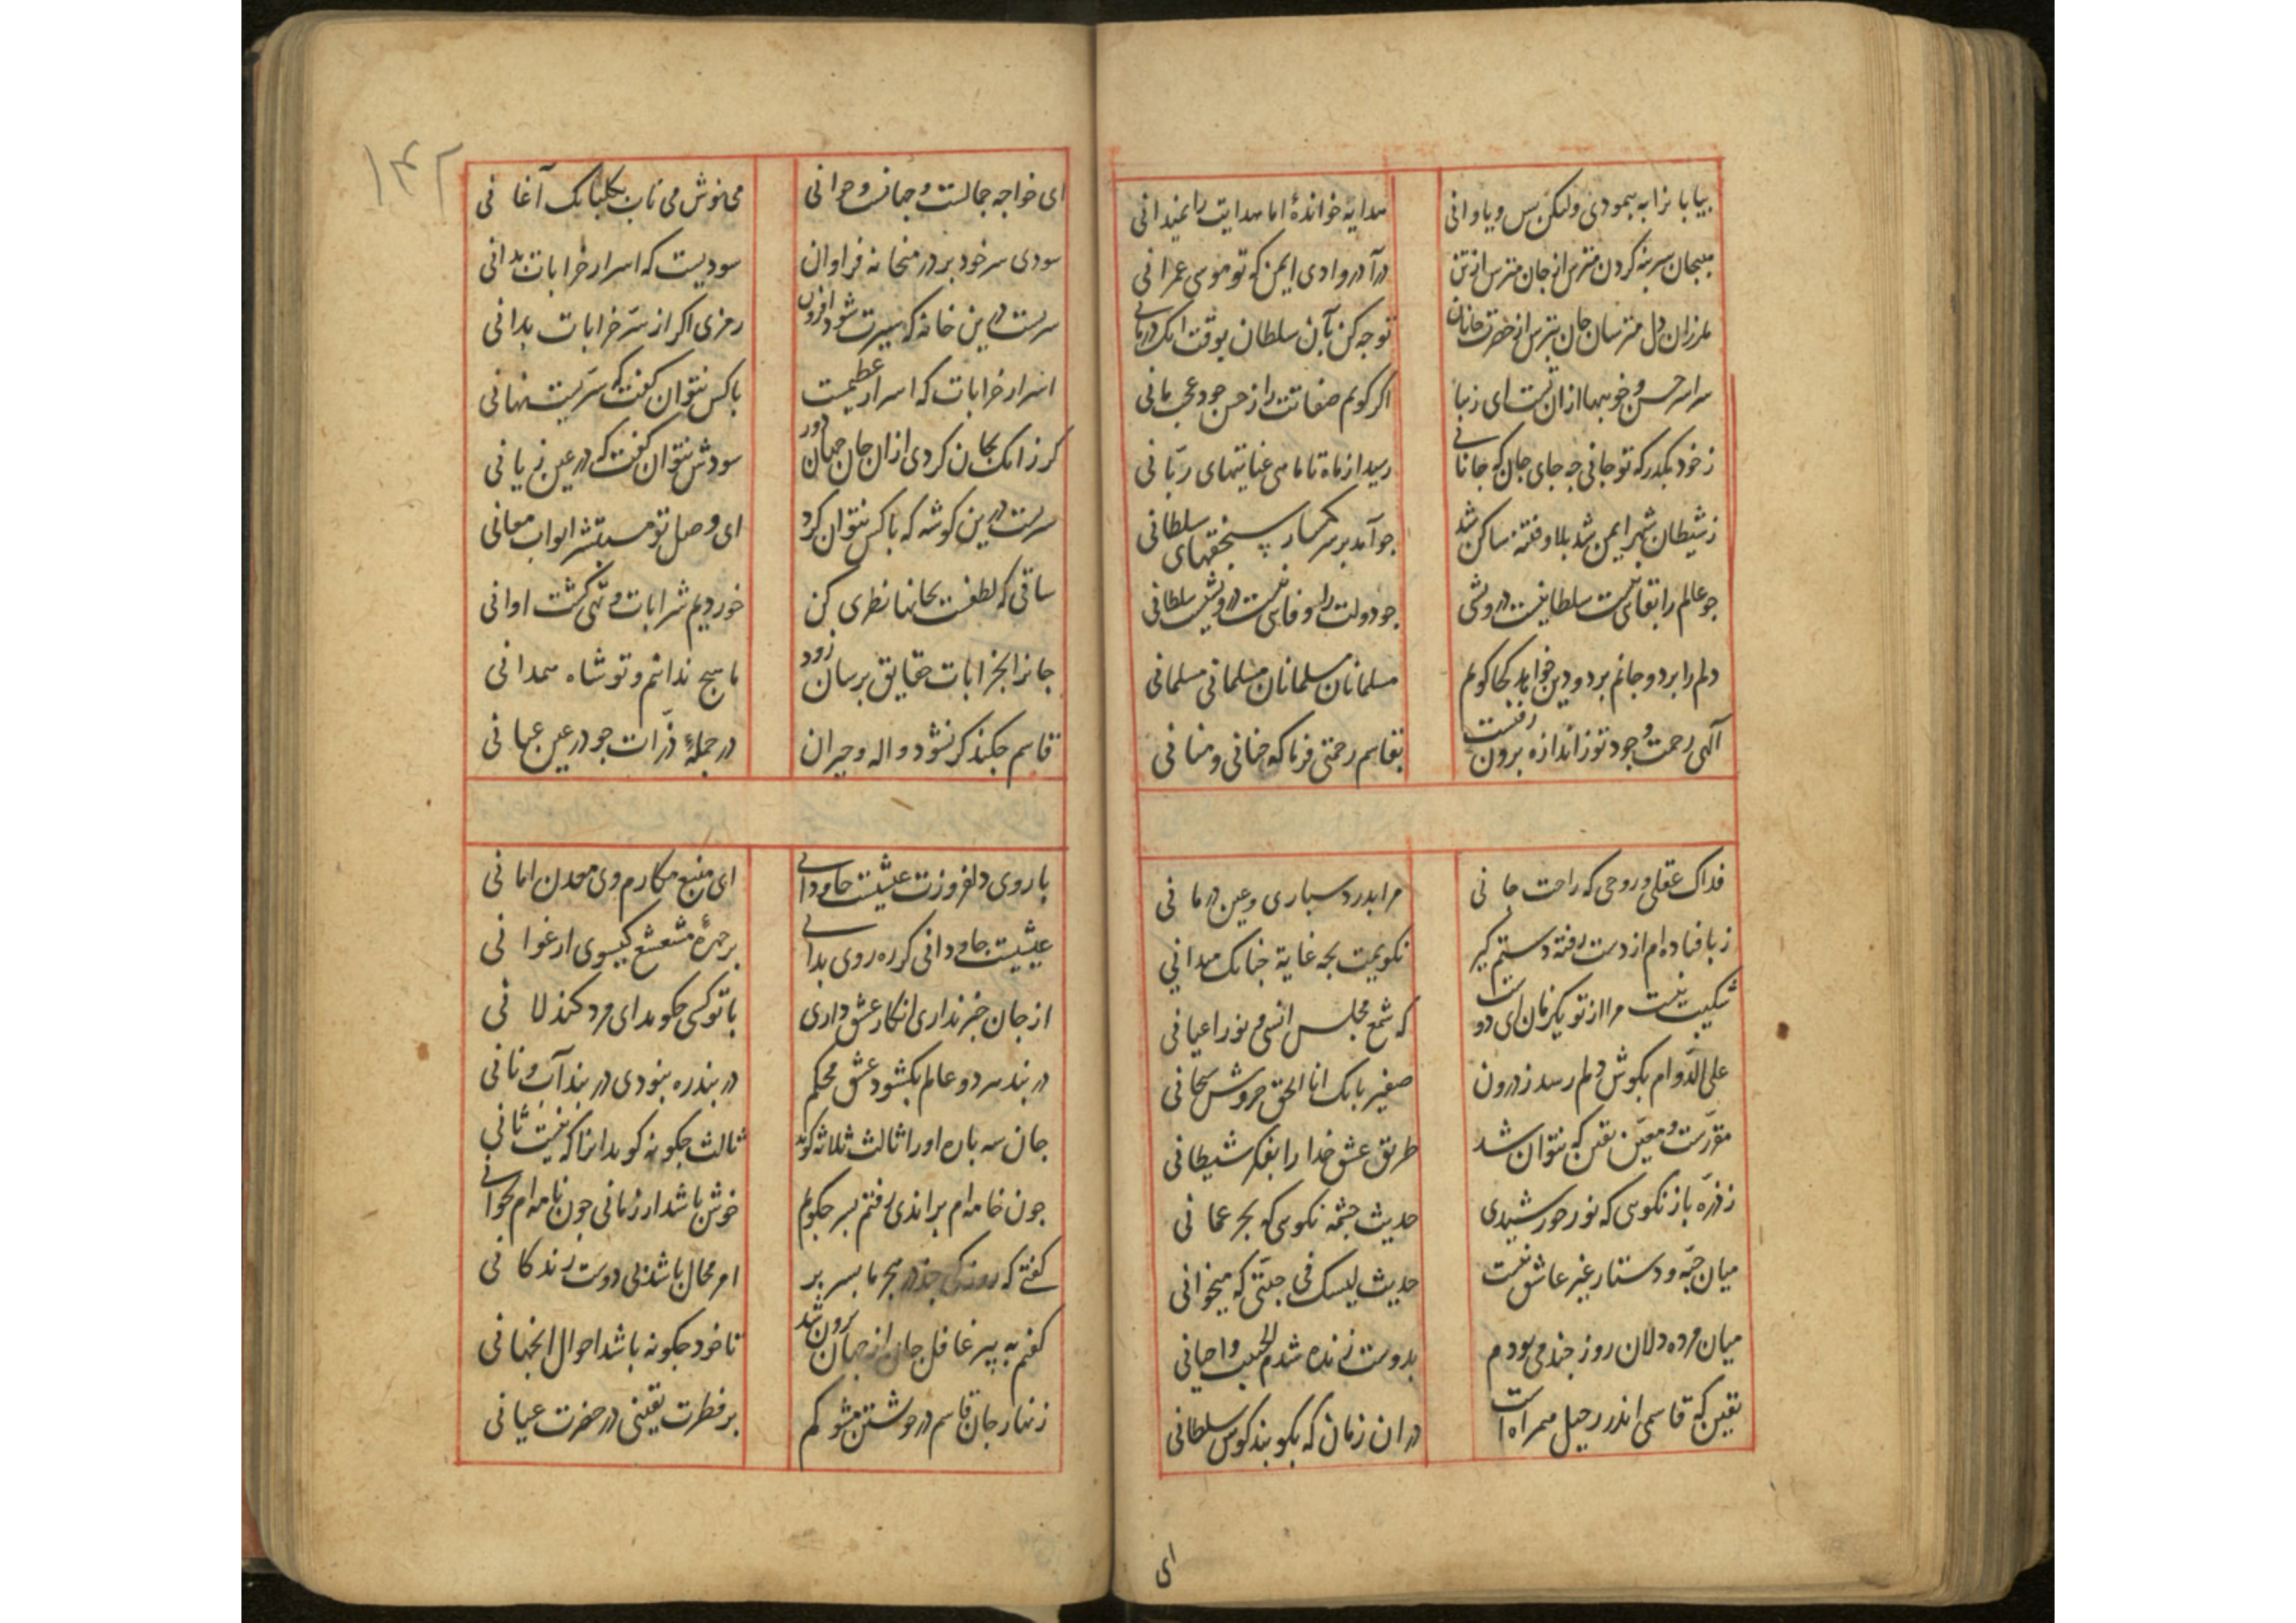 بیابانرا به پیمودی ولیکن بس ویاوانی
هدایه خواندهٔ اما هدایت را نمیدانی
سر بنه کردن مترس از جان مترس از تن
درآ در وادی ایمن که تو موسی عمرانی
ملرزان دل مترسان جان بترس از حضرت جانان
توجه کن بآن سلطان بوقت آنک درمانی
سراسر حسن و خوبیها از ان تست ای زیبا
اکر کویم صفاتت را ز حسن خود عجب مانی
ز خود بکذر که تو جانی چه جای جان که جانانی
رسید از ماه تا ماهی عنایتهای ربّانی
ز شیطان شهر ایمن شد بلا و فتنه ساکن شد
جو آمد بر سر سنجقهای سلطانی
جو عالم را بقایی نیست سلطانیست درویشی
جو دولت را وفایی نیست درویشیست سلطانی
دلم را برد و جانم برد و دین خواهد کجا کویم
مسلمانان مسلمانان مسلمانی مسلمانی
آلهی رحمت و جود تو ز اندازه برون رفتست
بقاسم رحمتی فرما که حنانی و منانی
فداک عقلی و روحی که راحت جانی
مرا بدرد سپاری و عین درمانی
ز پا فتاده ام از دست رفته دستم کیر
نکویمت بچه غایة جنانک میدانی
شکیب نیست مرا از تو یکزمان ای دوست
که شمع مجلس انسی و نور اعیانی
علی الدّوام بکوش دلم رسد ز درون
صفیر بانک انا الحق خروش سبحانی
مقرّرست و معیّن یقین که نتوان شد
طریق عشق خدا را بفکر شیطانی
ز ذرّه باز نکویی که نور خورشیدی
حدیث جشمه نکویی که بحر عمانی
میان جبّه و دستار غیر عاشق نیست
حدیث لیسک فی جبّتی که میخوانی
میان مرده دلان روز جند می بودم
بدوست زنده شدم الحبیب احیانی
یقین که قاسمی اندر رحیل همراه است
در ان زمان که بکوبند کوس سلطانی
ای
۱۴۲
ای خواجه جمالست و جهانست و جوانی
می نوش می ناب بکلبانک آغانی
سودی سر خود بر در میخانه فراوان
سودیست که اسرار خرابات بدانی
سریست درین خانه که سیرت شود افزون
رمزی اکر از سرّ خرابات بدانی
اسرار خرابات که اسرار عظیمست
با کس نتوان کفت که سرّیست نهانی
کر زانک بجان نکردی از ان جان جهان دور
سودش نتوان کفت که در عین زیانی
سریست درین کوشه که با کس نتوان کرد
ای وصل تو مستبشر ابواب معانی
ساقی که لطفت بجانها نظری کن
خوردیم شرابات و تهی کشت اوانی
جانرا بخرابات حقایق برسان زود
ما هیج ندانیم و تو شاه همدانی
قاسم جکند کر نشود واله و حیران
در جملهٔ ذرّات جو در عین عیانی
با روی دلفروزت عیشیست جاودانی
ای منبع مکارم وی معدن امانی
عیشیست جاودانی کر ره روی بدانی
بر جهرهٔ مشعشع کیسوی ارغوانی
از جان خبر نداری انکار عشق داری
با تو کسی جکوید ای مرد کند لانی
در بند هر دو عالم بکشود عشق محکم
در بند ره نبودی در بند آب و نانی
جان سه باره او را ثالث ثلاثه کوید
ثالث جکونه کوید انرا که نیست ثانی
جون خامه ام براندی رفتم بسر جکویم
خوش باشد ار زمانی جون نامه ام بخوانی
کفتی که روزکی جند در هجر ما بسر بر
امر محال باشد بی دوست زندکانی
کفتم به پیر غافل جان از جهان برون شد
تا خود جکونه باشد احوال انجهانی
زنهار جان قاسم در خویشتن مشو کم
بر فطرت یقینی در حضرت عیانی